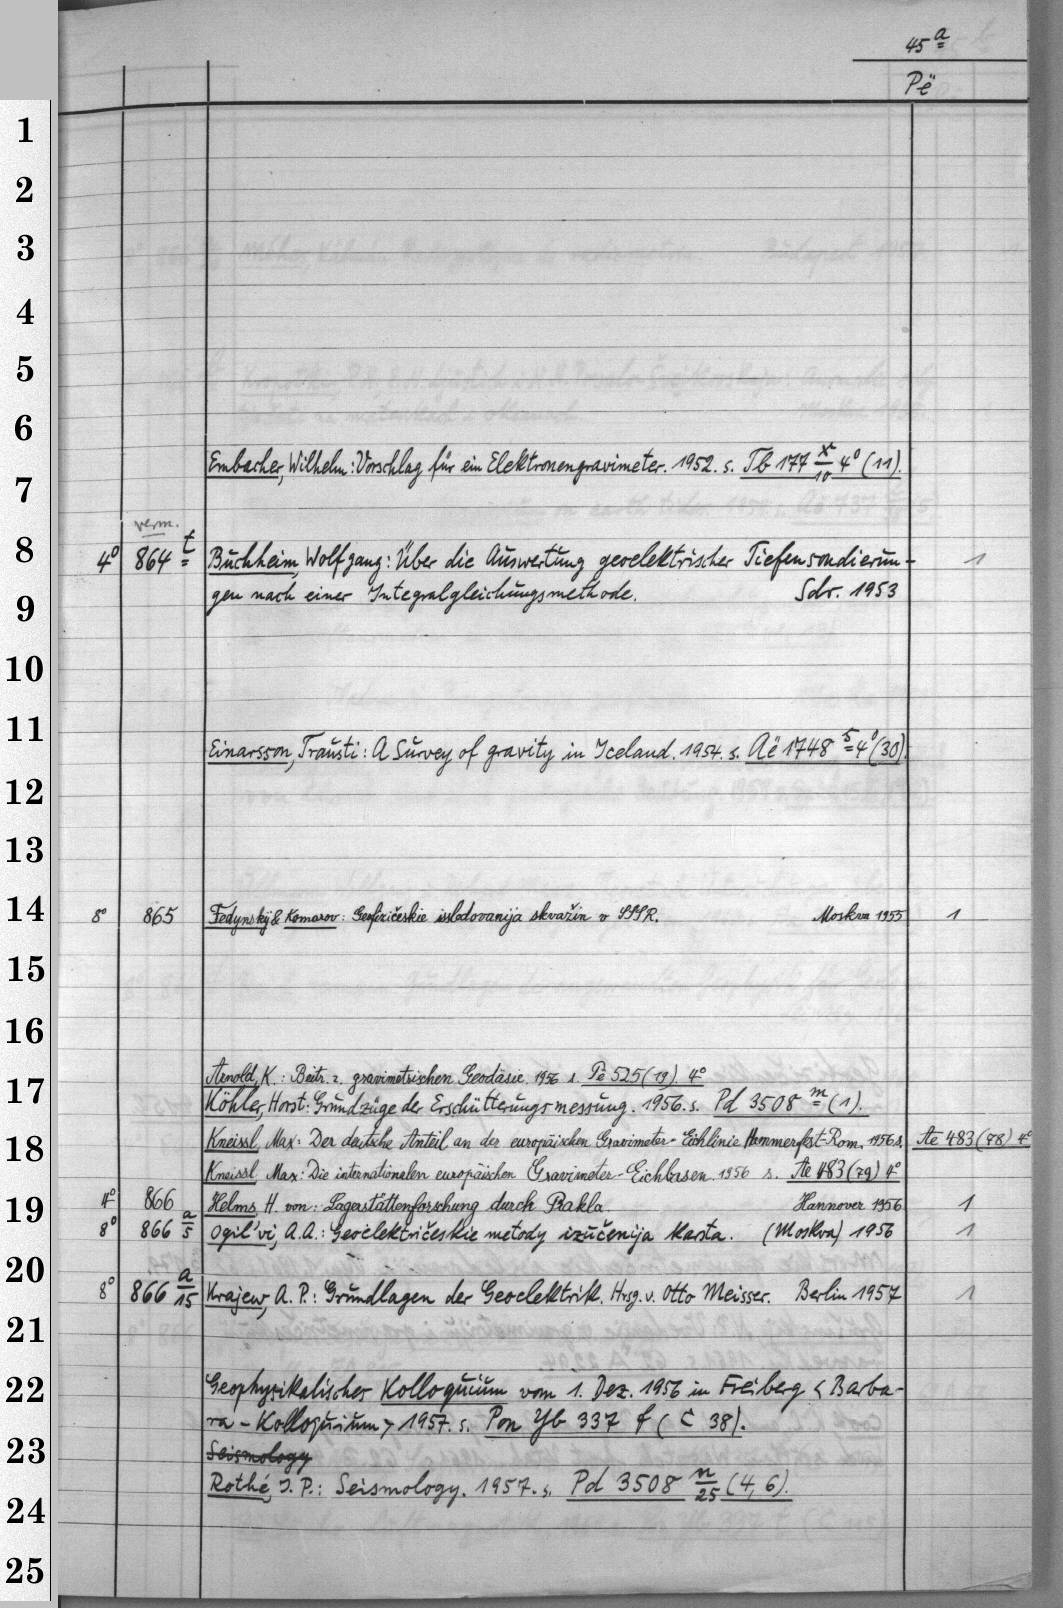 45 a
Pë
1
2
3
4
5
6
Embacher, Wilhelm: Vorschlag für ein Elektronengravimeter. 1952. s. Tb 177 x/10 4° (11).
7
verm.
8 4° 864 t Buchheim, Wolfgang: Über die Auswertung geoelektrischer Tiefensondierun- 1
9 gen nach einer Integralgleichungsmethode. Sdr. 1953
10
11 Einarsson, Trausti: A Survey of gravity in Iceland. 1954. s. Aë 1748 5 4° (30).
12
13
14 8° 865 Fedynskij & Komarov: Geofizičeskie issledovanija skvažin v SSSR. Moskva 1955 1
15
16
Arnold, K.: Beitr. z. gravimetrischen Geodäsie. 1956 s. Pë 525 (19) 4°
17 Köhler, Horst: Grundzüge der Erschütterungsmessung. 1956. s. Pd 3508 m (1).
18 Kneissl, Max: Der deutsche Anteil an der europäischen Gravimeter-Eichlinie Hammerfest-Rom. 1956 s. Ae 483 (78) 4°
Kneissl, Max: Die internationalen europäischen Gravimeter-Eichbasen. 1956 s. Ae 483 (79) 4°
19 4° 866 Helms, H. von: Lagerstättenforschung durch Prakla. Hannover 1956 1
8° 866 a/5 Ogil'vi, A. A.: Geoelektričeskie metody izučenija karsta. (Moskva) 1956 1
20 8° 866 a/15 Krajew, A. P.: Grundlagen der Geoelektrik. Hrsg. v. Otto Meisser. Berlin 1957 1
21
22 Geophysikalisches Kolloquium vom 1. Dez. 1956 in Freiberg < Barba-
ra-Kolloquium > 1957. s. Pon Yb 337 f (C 38).
23 Seismology
24 Rothé, J. P.: Seismology. 1957. s. Pd 3508 n/25 (4, 6).
25